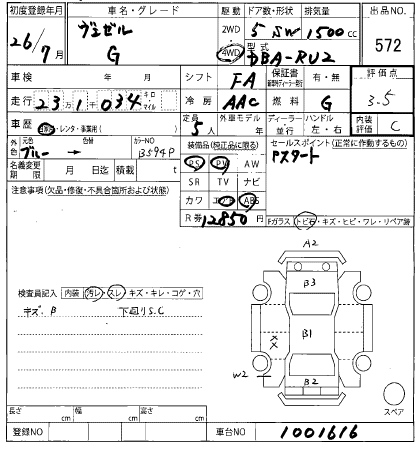 初度登録年月 車名・グレード 駆動 ドア数・形状 排気量 出品NO
26/7月 ヴェゼル G 2WD 4WD 5 SW 1500cc 572
型式 DBA-RU2
車検 年 月 シフト FA 保証書 有・無 評価点
走行 23万1千034 キロ マイル 冷房 AAC 燃料 G 3.5
車歴 自家用・レンタ・事業用( ) 定員 5人 外車モデル 年 ディーラー・並行 ハンドル 左・右 内装評価 C
外色 元色 ブルー → 色替 カラーNO B594P
装備品(純正品に限る) セールスポイント(正常に作動するもの)
名義変更期限 月 日迄 積載 t
PS PW AW Pスタート
注意事項(欠品・修復・不具合箇所および状態)
SR TV ナビ
カワ エアB ABS
R券 12850円
Fガラス(トビ石・キズ・ヒビ・ワレ・リペア跡
A2
B3
検査員記入 内装 汚レ・スレ・キズ・キレ・コゲ・穴
キズ、B 下廻りS.C
B1
XX
W2
B2
スペア
長さ cm 幅 cm 高さ cm
登録NO 車台NO 1001616